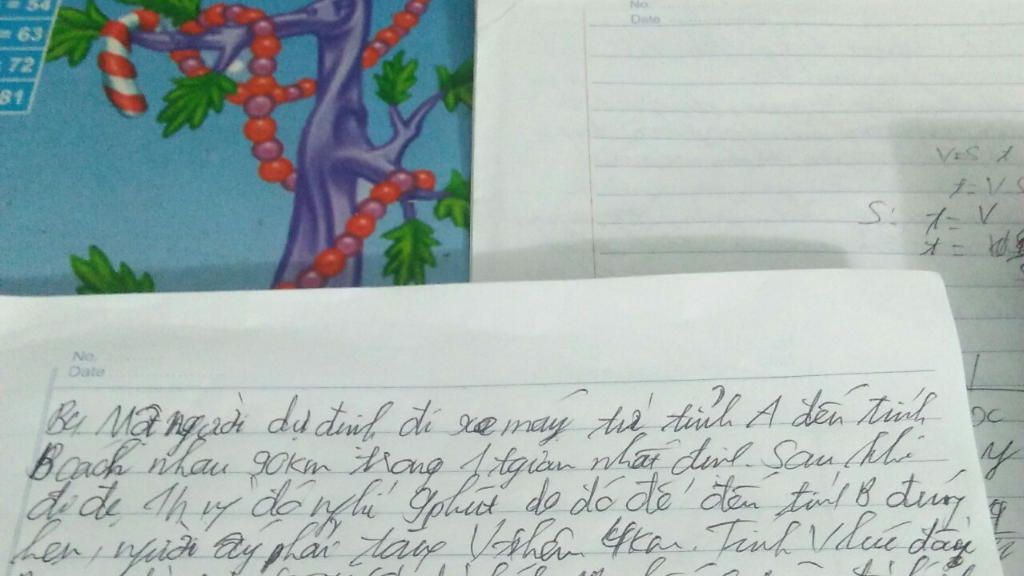 = 54
= 63
= 72
81
No.
Date
V=S t
t=V-S
S: t= V
t=
No.
Date
B4 Một người dự định đi xe máy từ tỉnh A đến tỉnh
B cách nhau 90km trong 1 tgian nhất định. Sau khi
đi đc 1h ng đó nghỉ 9phút do đó để đến tỉnh B đúng
hẹn, người ấy phải tăng V thêm 4km. Tính V lúc đầu
x
y